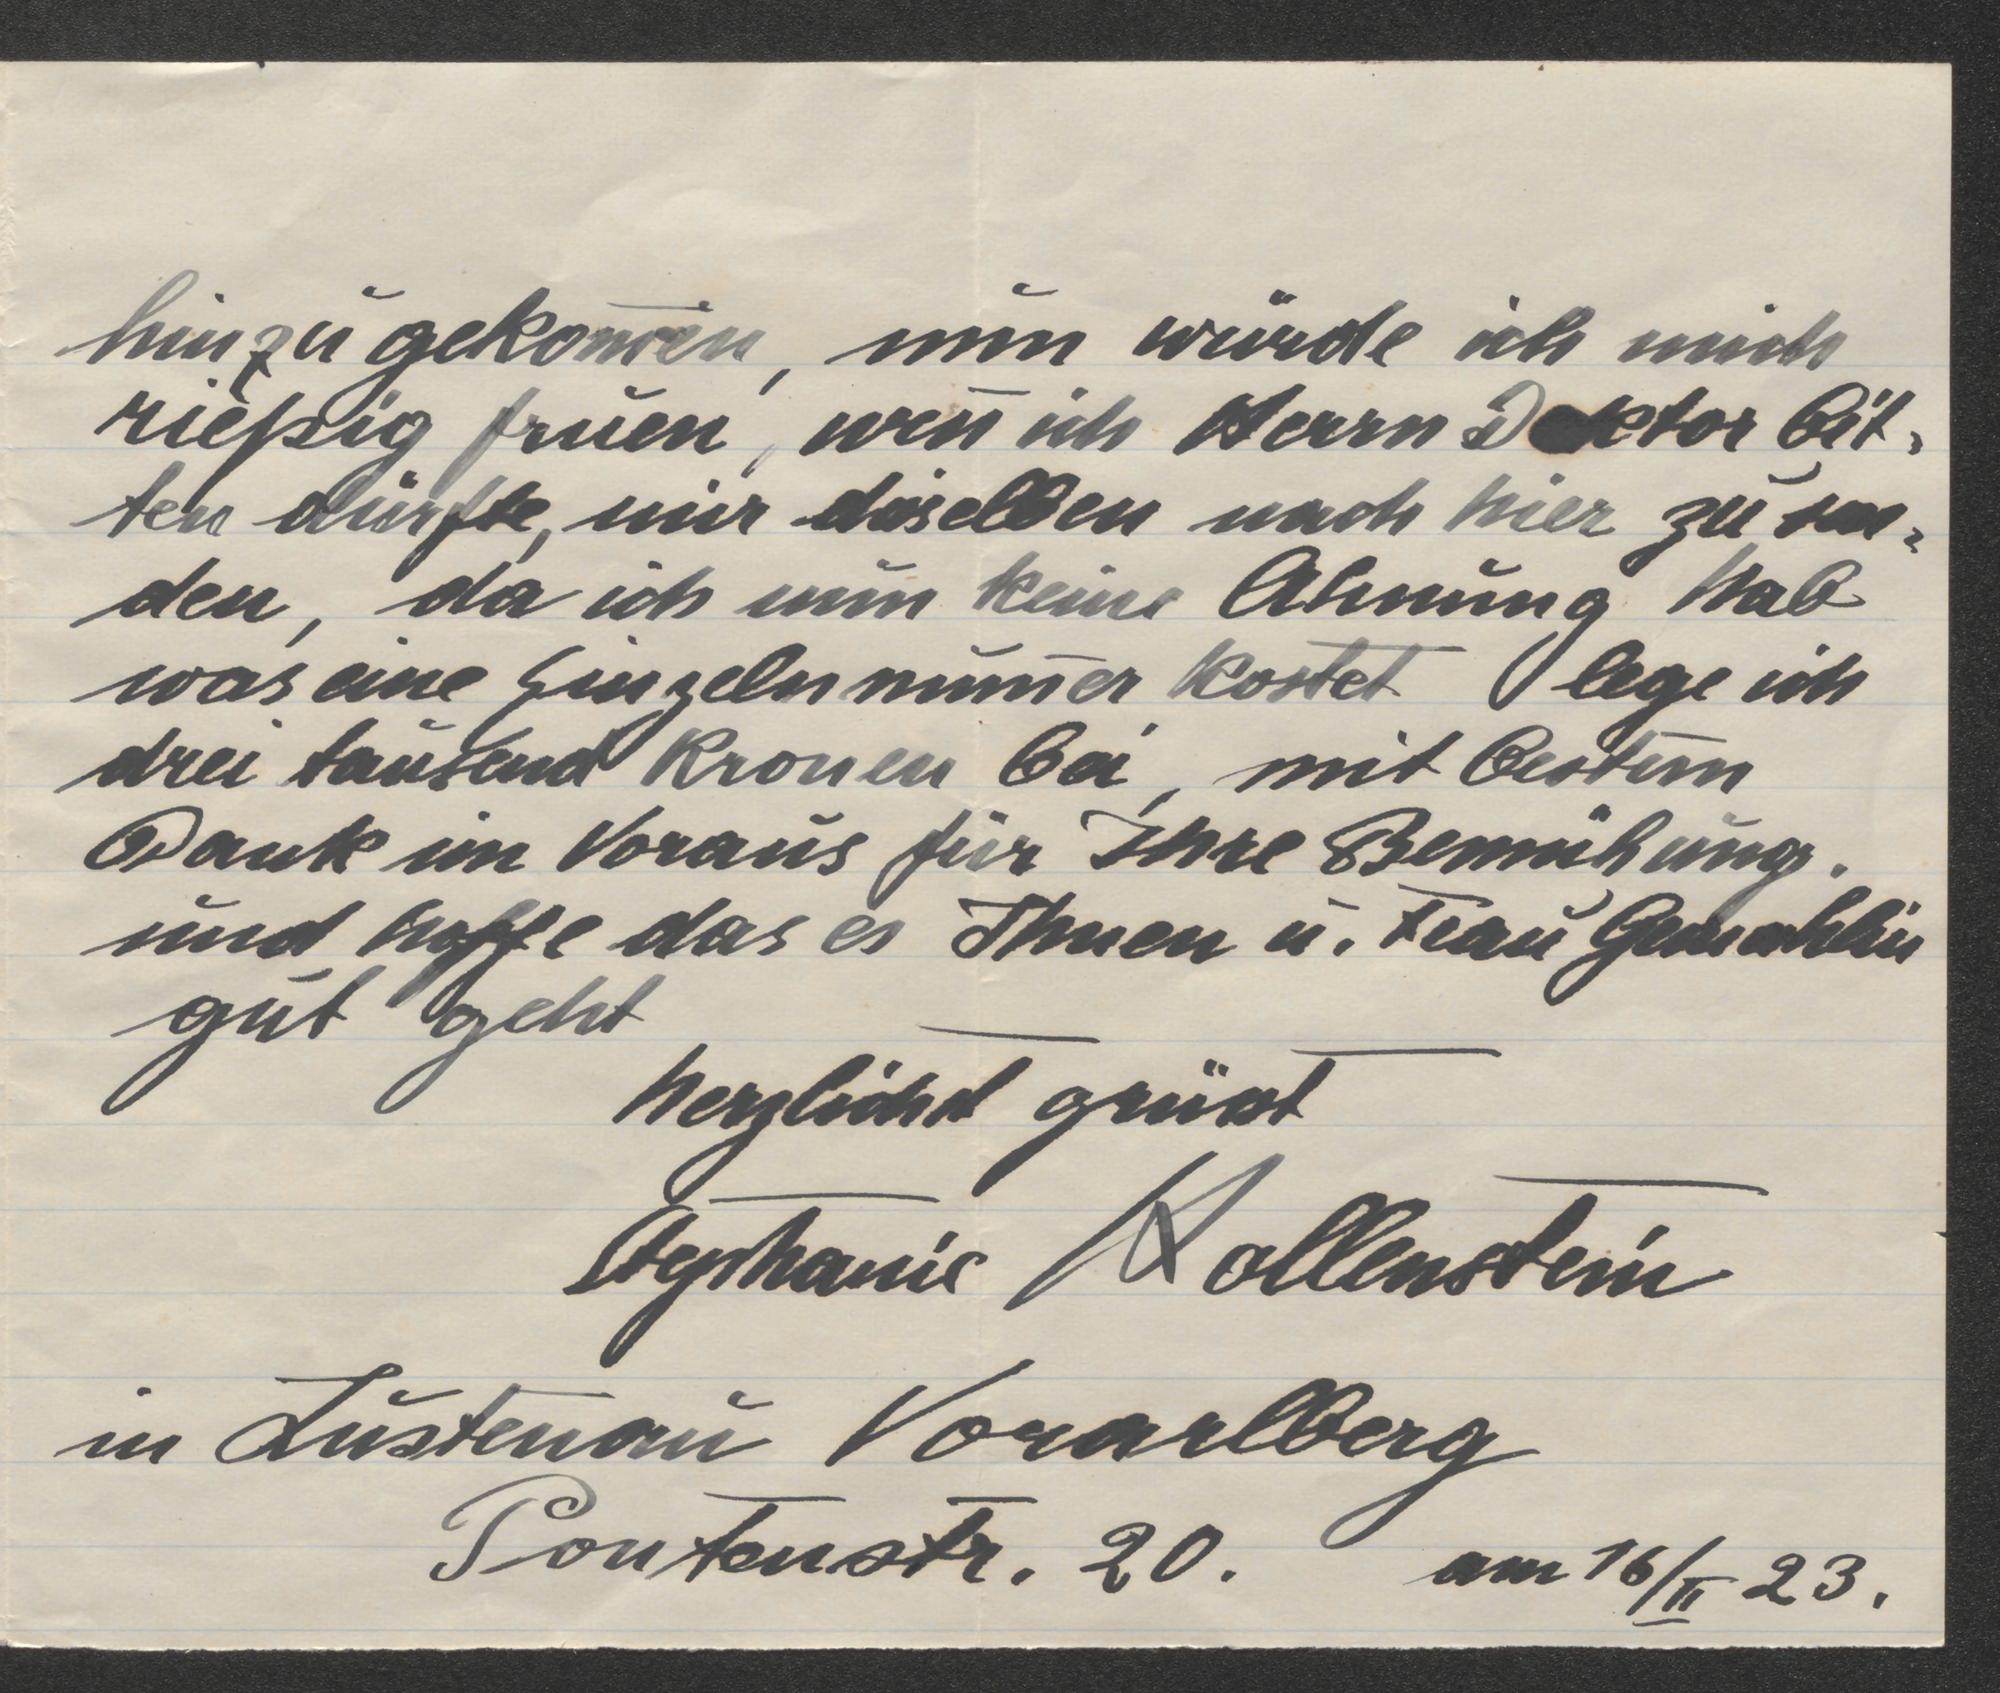 hinzu gekom̅en, nun würde ich mich
rießig fruen, wen̅ ich Herrn Doktor bit-
ten dürfte, mir dasselben nach hier zu sen-
den, da ich nun keine Ahnung hab
was eine Einzelnnum̅er kostet lege ich
drei tausend Kronen bei, mit bestem
Dank im Voraus für Ihre Bemühung.
und hoffe das es Ihnen u. Frau Gemahlin
gut geht
herzlichst grüsst
Stephanie Hollenstein
in Lustenau Vorarlberg
Pontenstr. 20. am 16/II 23.